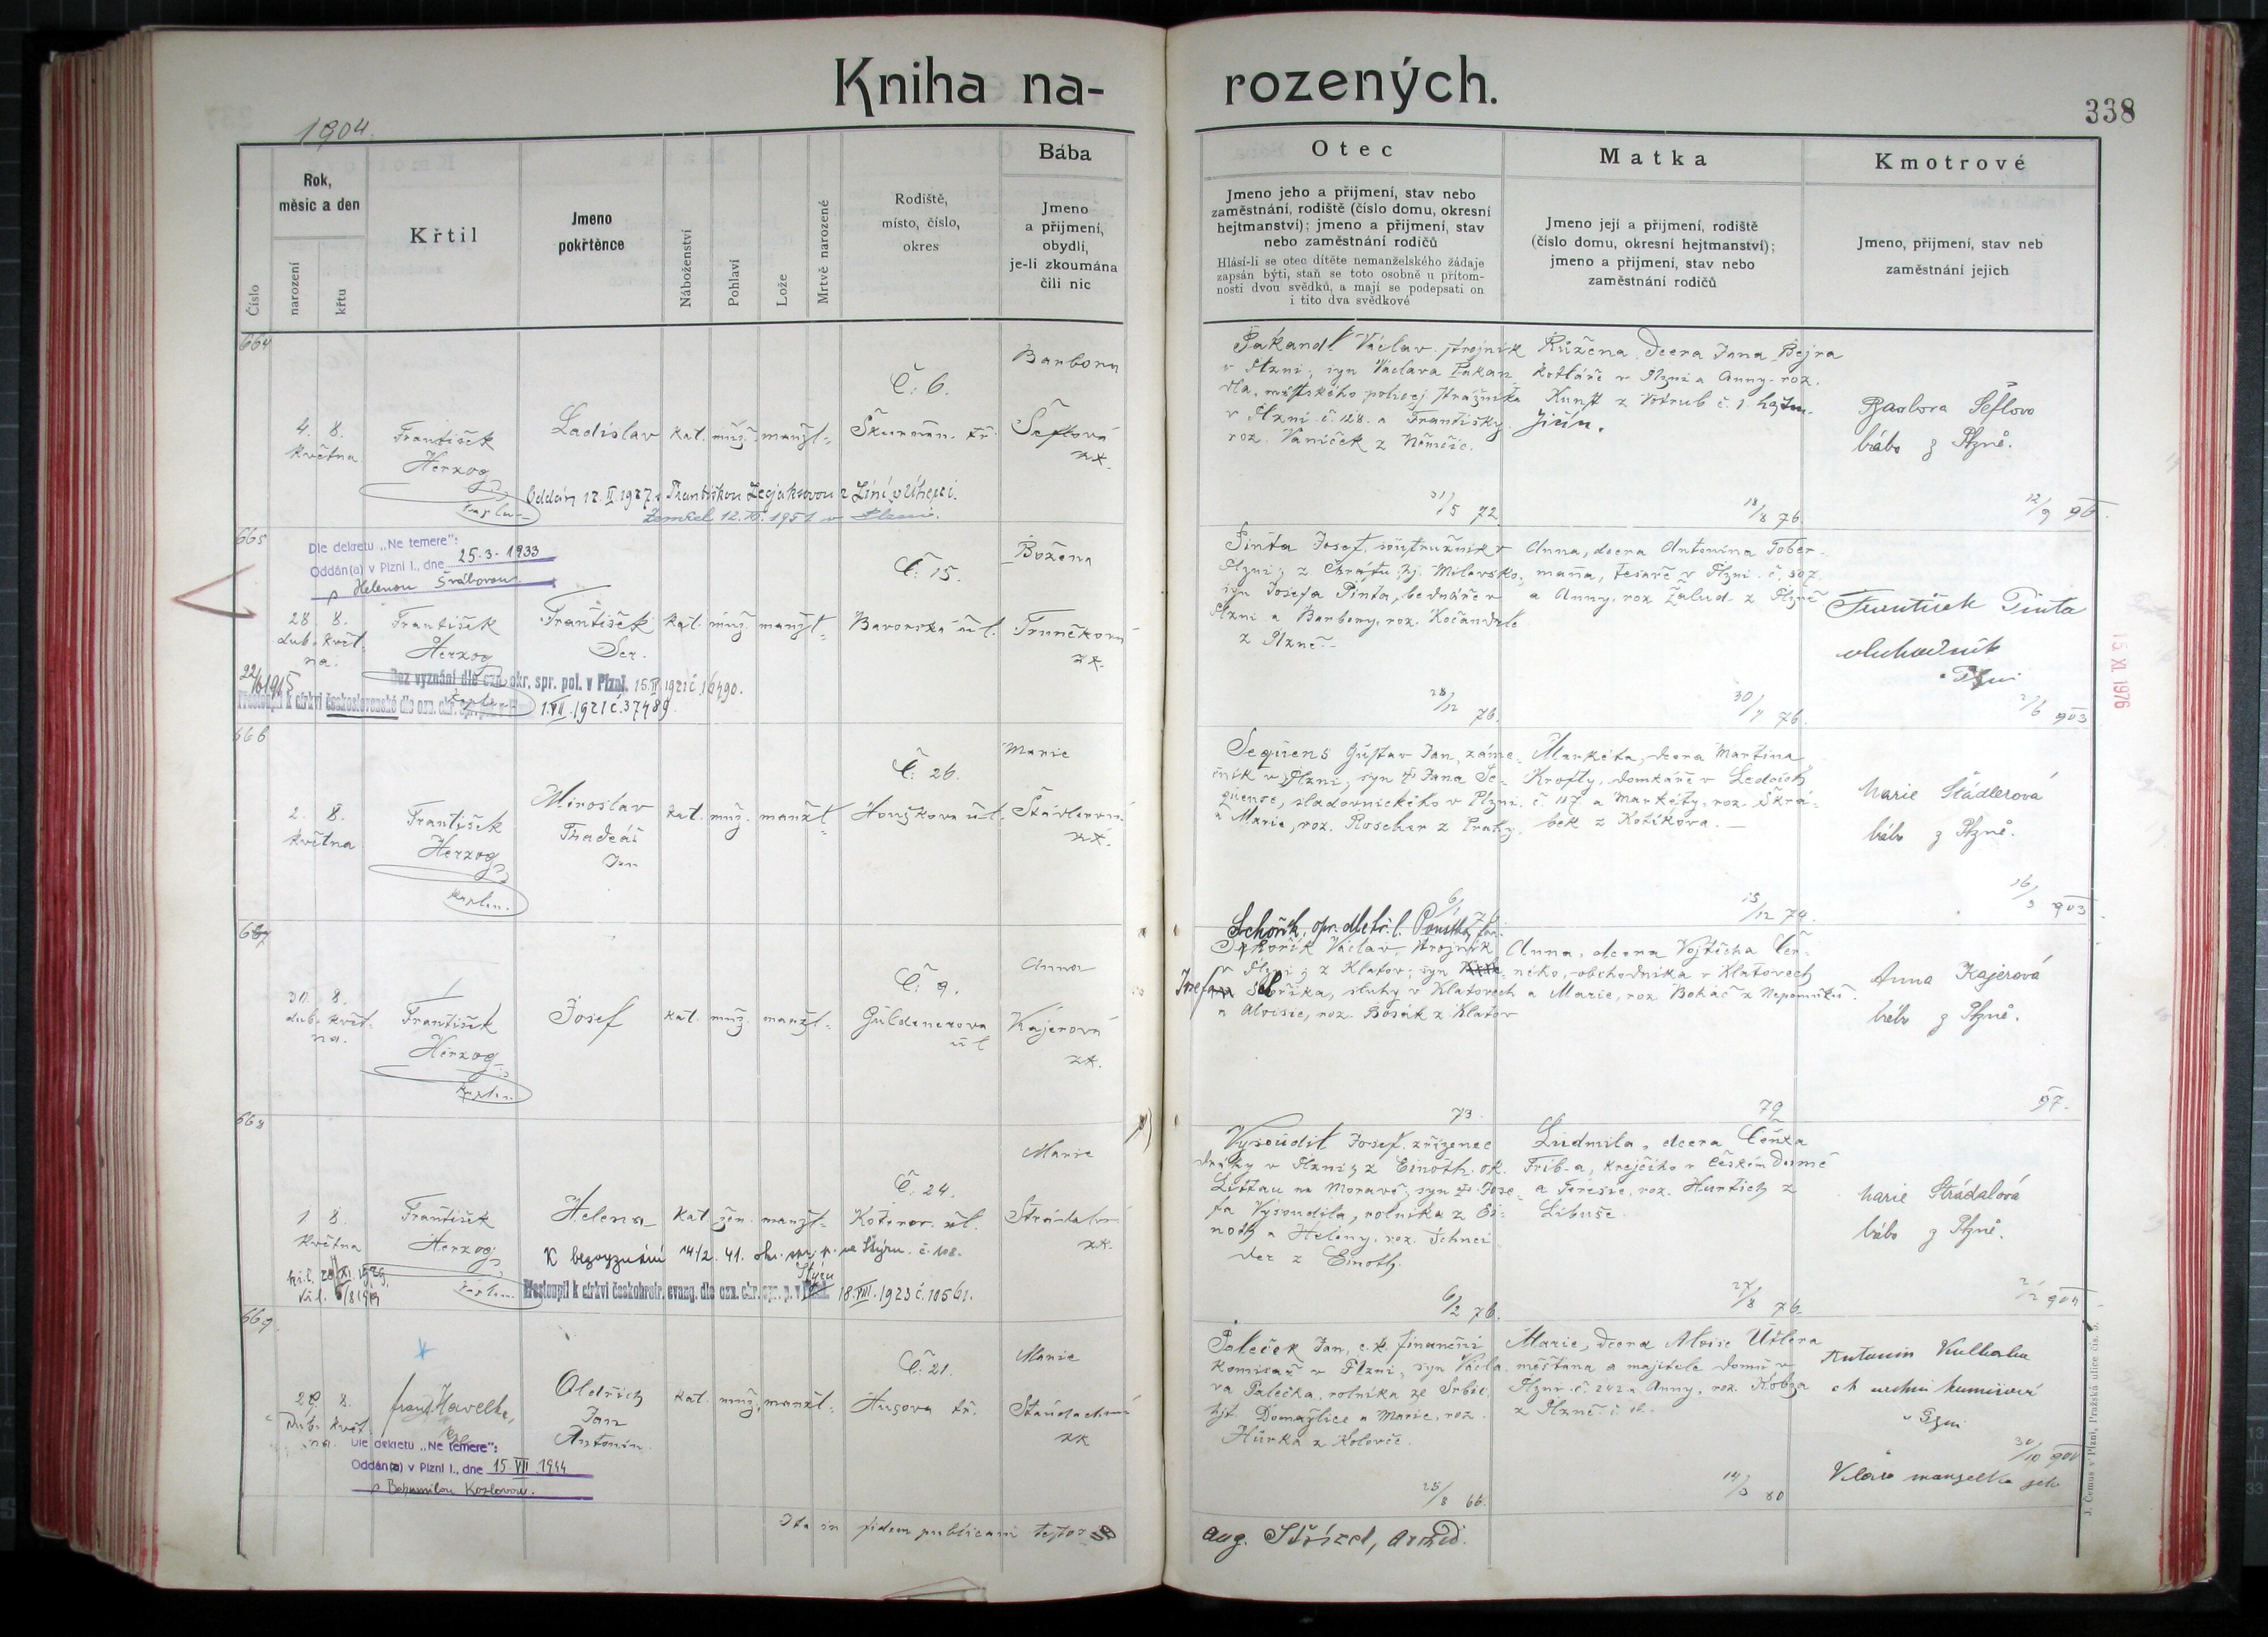 Kniha na-
rozených.
338
1904.
Číslo
Rok,
měsíc a den
narození
křtu
Křtil
Jmeno
pokřtěnce
Náboženství
Pohlaví
Lože
Mrtvě narozené
Rodiště,
místo, číslo,
okres
Bába
Jmeno
a přijmení,
obydlí,
je-li zkoumána
čili nic
Otec
Jmeno jeho a přijmení, stav nebo
zaměstnání, rodiště (číslo domu, okresní
hejtmanství); jmeno a přijmení, stav
nebo zaměstnání rodičů
Hlásí-li se otec dítěte nemanželského žádaje
zapsán býti, staň se toto osobně u přítom-
nosti dvou svědků, a mají se podepsati on
i tito dva svědkové
Matka
Jmeno její a přijmení, rodiště
(číslo domu, okresní hejtmanství);
jmeno a přijmení, stav nebo
zaměstnání rodičů
Kmotrové
Jmeno, přijmení, stav neb
zaměstnání jejich
664
4. 8.
května
František
Herzog
kaplan
Ladislav
kat. muž. manžl.
Č. 6.
Škurnian. tř.
Barbora
Šeflová
zk.
Oddán 12.II.1927 s Františkou
Zemřel 12. 1951 v Plzni.
Pakandl Václav, strojník
v Plzni, syn Václava Pakan
dla, městského policej. strážníka
v Plzni č. 128. a Františky
roz. Vaníček z Němčic.
21/5 72
Růžena, dcera Jana Bejra
kotláře v Plzni a Anny roz.
Kunst z Votrub č. 1. hejtm.
Jičín.
18/8 76.
Barbora Šeflova
bába z Plzně.
12/9 96.
665
Dle dekretu „Ne temere":
Oddán(a) v Plzni I., dne 25.3.1933
s Helenou Švábovou
28. 8.
dub. květ-
na.
František
Herzog
kaplan
František
Ser.
kat. muž. manžl.
Č. 15.
Bavorská ul.
Božena
Trunečková
zk.
22/6 1915
Bez vyznání dle ozn. okr. spr. pol. v Plzni. 15.II.1921 č. 16490.
Přestoupil k církvi československé dle ozn. okr. 1.VII.1921 č. 37489.
Pinta Josef, soustružník v
Plzni; z Chrástu, hj. Milevsko,
syn Josefa Pinta, bednáře v
Plzni a Barbory, roz. Kočandrle
z Plzně.
28/12 76.
Anna, dcera Antonína Tober-
mana, tesaře v Plzni č. 507
a Anny, roz. Žalud z Plzně
30/7 76.
František Pinta
obchodník
v Plzni
2/6 903
15. XI. 1976
666
2. 8.
května
František
Herzog
kaplan.
Miroslav
Thadeáš
Jan
kat. muž. manžl.
Č. 26.
Houškova ul.
Marie
Štádlerová
zk.
Sequens Gustav Jan, záme-
čník v Plzni, syn † Jana Se-
quense, sladovnického v Plzni
a Marie, roz. Roscher z Prahy.
6/1 76.
Markéta, dcera Martina
Krofty, domkáře v Ledcích
č. 117. a Markéty, roz. Škrá-
bek z Kotíkova.
15/12 74.
Marie Štádlerová
bába z Plzně.
16/3 903
667
30. 8.
dub. květ-
na.
František
Herzog
kaplan
Josef
kat. muž. manžl.
Č. 9.
Guldenerova
ul
Anna
Kajerová
zk.
Schořík, opr. dle
Václav, strojník
v Plzni; z Klatov; syn
Josefa Schoříka, sluhy v Klatovech
a Aloisie, roz. Bosák z Klatov
73.
Anna, dcera Vojtěcha Čer-
ného, obchodníka v Klatovech
a Marie, roz. Boháč z Nepomuku.
79
Anna Kajerová
bába z Plzně.
97.
668
1. 8.
května
František
Herzog
kaplan.
Helena
kat. žen. manžl.
Č. 24.
Koterov. ul.
Marie
Strádalová
zk.
K bezvyznání 14/2. 41. okr. č. 108.
Přestoupil k církvi českobratr. evang. dle ozn. okr. spr. p. v 18.VIII.1923 č. 10561.
Vysoudil Josef, zřízenec
dráhy v Plzni; z Einoth. ok.
Littau na Moravě; syn † Jose-
fa Vysoudila, rolníka z Ei-
noth a Heleny, roz. Schnei
der z Einoth.
6/2 76.
Ludmila, dcera Čeňka
Frib-a, krejčího v Českém Domě
a Teresie, roz. Hurtich z
Libuše.
27/8 76.
Marie Strádalová
bába z Plzně.
2/2 904
669.
29. 8.
dub. květ-
na.
Havelka,
Oldřich
Jan
Antonín.
kat. muž. manžl.
Č. 21.
Husova tř.
Marie
Staudachrová
zk
Dle dekretu „Ne temere":
Oddán(a) v Plzni I., dne 15.VII.1944
s Bohumilou Kozlovou.
Paleček Jan, c.k. finanční
komisař v Plzni, syn Václa-
va Palečka, rolníka ze Srbic,
hjt. Domažlice a Marie, roz.
Hůrka z Koloveč.
25/8 66.
Marie, dcera Aloise Utlera
měšťana a majitele domu v
Plzni č. 242 a Anny, roz. Kobza
z Plzně
14/3 80
Antonín Kulhalu
v Plzni
30/10 900
Klára manželka jeho
Ita in fidem publicam testor
Aug. Střízel, arcid.
J. Černus v Plzni, Pražská ulice čís. 5.